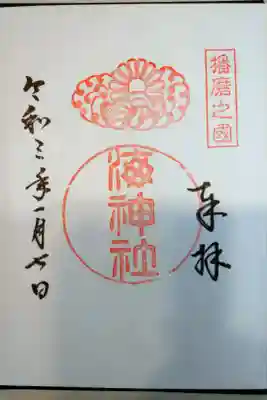 播磨之國
奉拝
海神社
令和三年一月七日